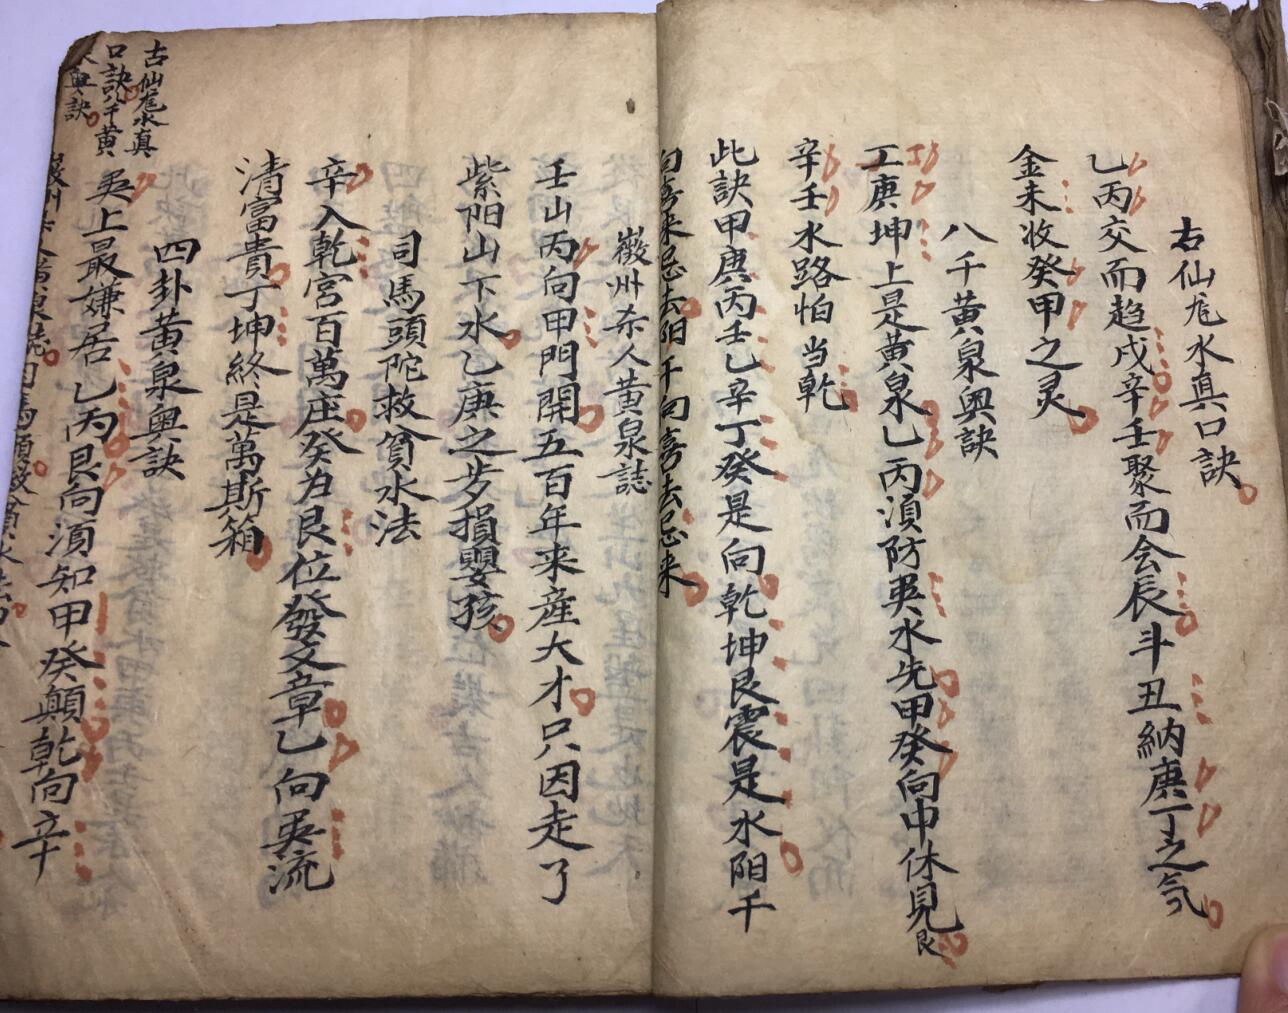 古仙卮水真口訣
乙丙交而趋戍辛壬聚而会辰斗丑納庚丁之氕
金未收癸甲之灵
八千黄泉奥訣
工庚坤上是黄泉乙丙湏防巽水先甲癸向中休見艮
辛壬水路怕当乾
此訣甲庚丙壬乙辛丁癸是向乾坤艮震是水阳千
向喜来忌去阳千向喜去忌来
嶶州杀人黄泉誌
壬山丙向甲門開五百年来産大才只因走了
紫阳山下水乙庚之步損嬰孩
司馬頭陀救貧水法
辛入乾宮百萬庄癸为艮位發文章乙向巽流
清富貴丁坤終是萬斯箱
四卦黄泉奥訣
巽上最嫌居乙丙艮向湏知甲癸顛乾向辛
古仙卮水真
口訣八千黄
奥訣